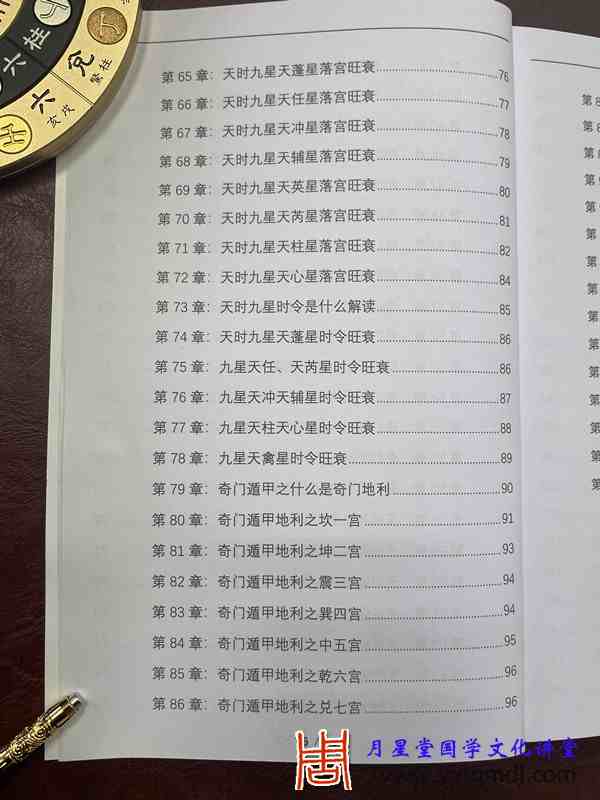 六柱
六兌
亥戌
驚柱
第 65 章：天时九星天蓬星落宫旺衰 76
第 66 章：天时九星天任星落宫旺衰 77
第 67 章：天时九星天冲星落宫旺衰 78
第 68 章：天时九星天辅星落宫旺衰 79
第 69 章：天时九星天英星落宫旺衰 80
第 70 章：天时九星天芮星落宫旺衰 81
第 71 章：天时九星天柱星落宫旺衰 82
第 72 章：天时九星天心星落宫旺衰 84
第 73 章：天时九星时令是什么解读 85
第 74 章：天时九星天蓬星时令旺衰 86
第 75 章：九星天任、天芮星时令旺衰 86
第 76 章：九星天冲天辅星时令旺衰 87
第 77 章：九星天柱天心星时令旺衰 88
第 78 章：九星天禽星时令旺衰 89
第 79 章：奇门遁甲之什么是奇门地利 90
第 80 章：奇门遁甲地利之坎一宫 91
第 81 章：奇门遁甲地利之坤二宫 93
第 82 章：奇门遁甲地利之震三宫 94
第 83 章：奇门遁甲地利之巽四宫 94
第 84 章：奇门遁甲地利之中五宫 95
第 85 章：奇门遁甲地利之乾六宫 96
第 86 章：奇门遁甲地利之兑七宫 96
月星堂国学文化讲堂